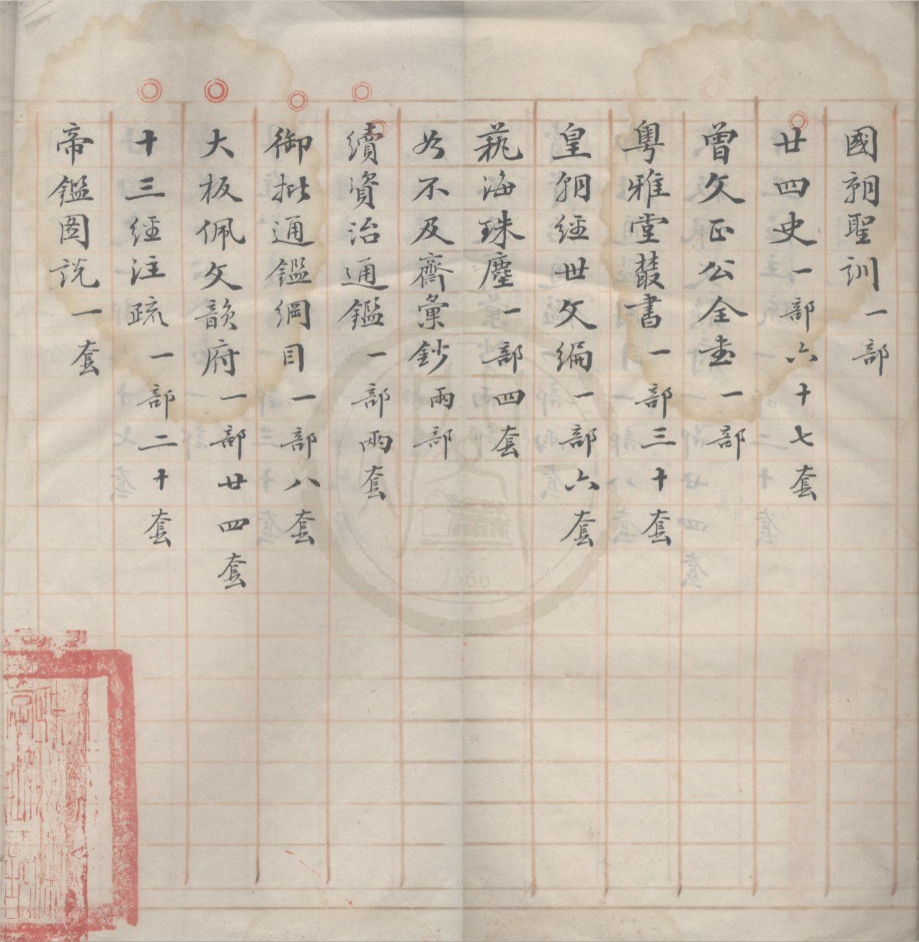 國朝聖訓一部
廿四史一部六十七套
曾文正公全書一部
粵雅堂叢書一部三十套
皇朝經世文編一部六套
藝海珠塵一部四套
知不足齋彙鈔兩部
續資治通鑑一部兩套
御批通鑑綱目一部八套
大板佩文韻府一部廿四套
十三經注疏一部二十套
帝鑑圖說一套
1866